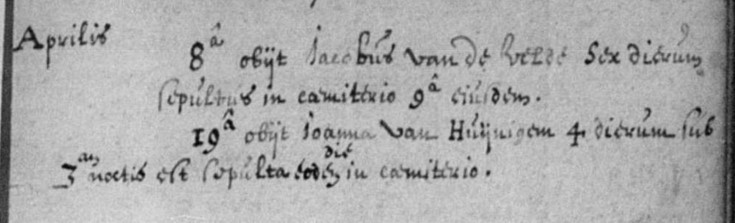 Aprilis
8â obijt Jacobus van de Velde sex dierum
sepultus in cœmiterio 9â eiusdem.
19â obijt Joanna van Huijnigem 4 dierum sub
3am noctis est sepulta eodem die in cœmiterio.